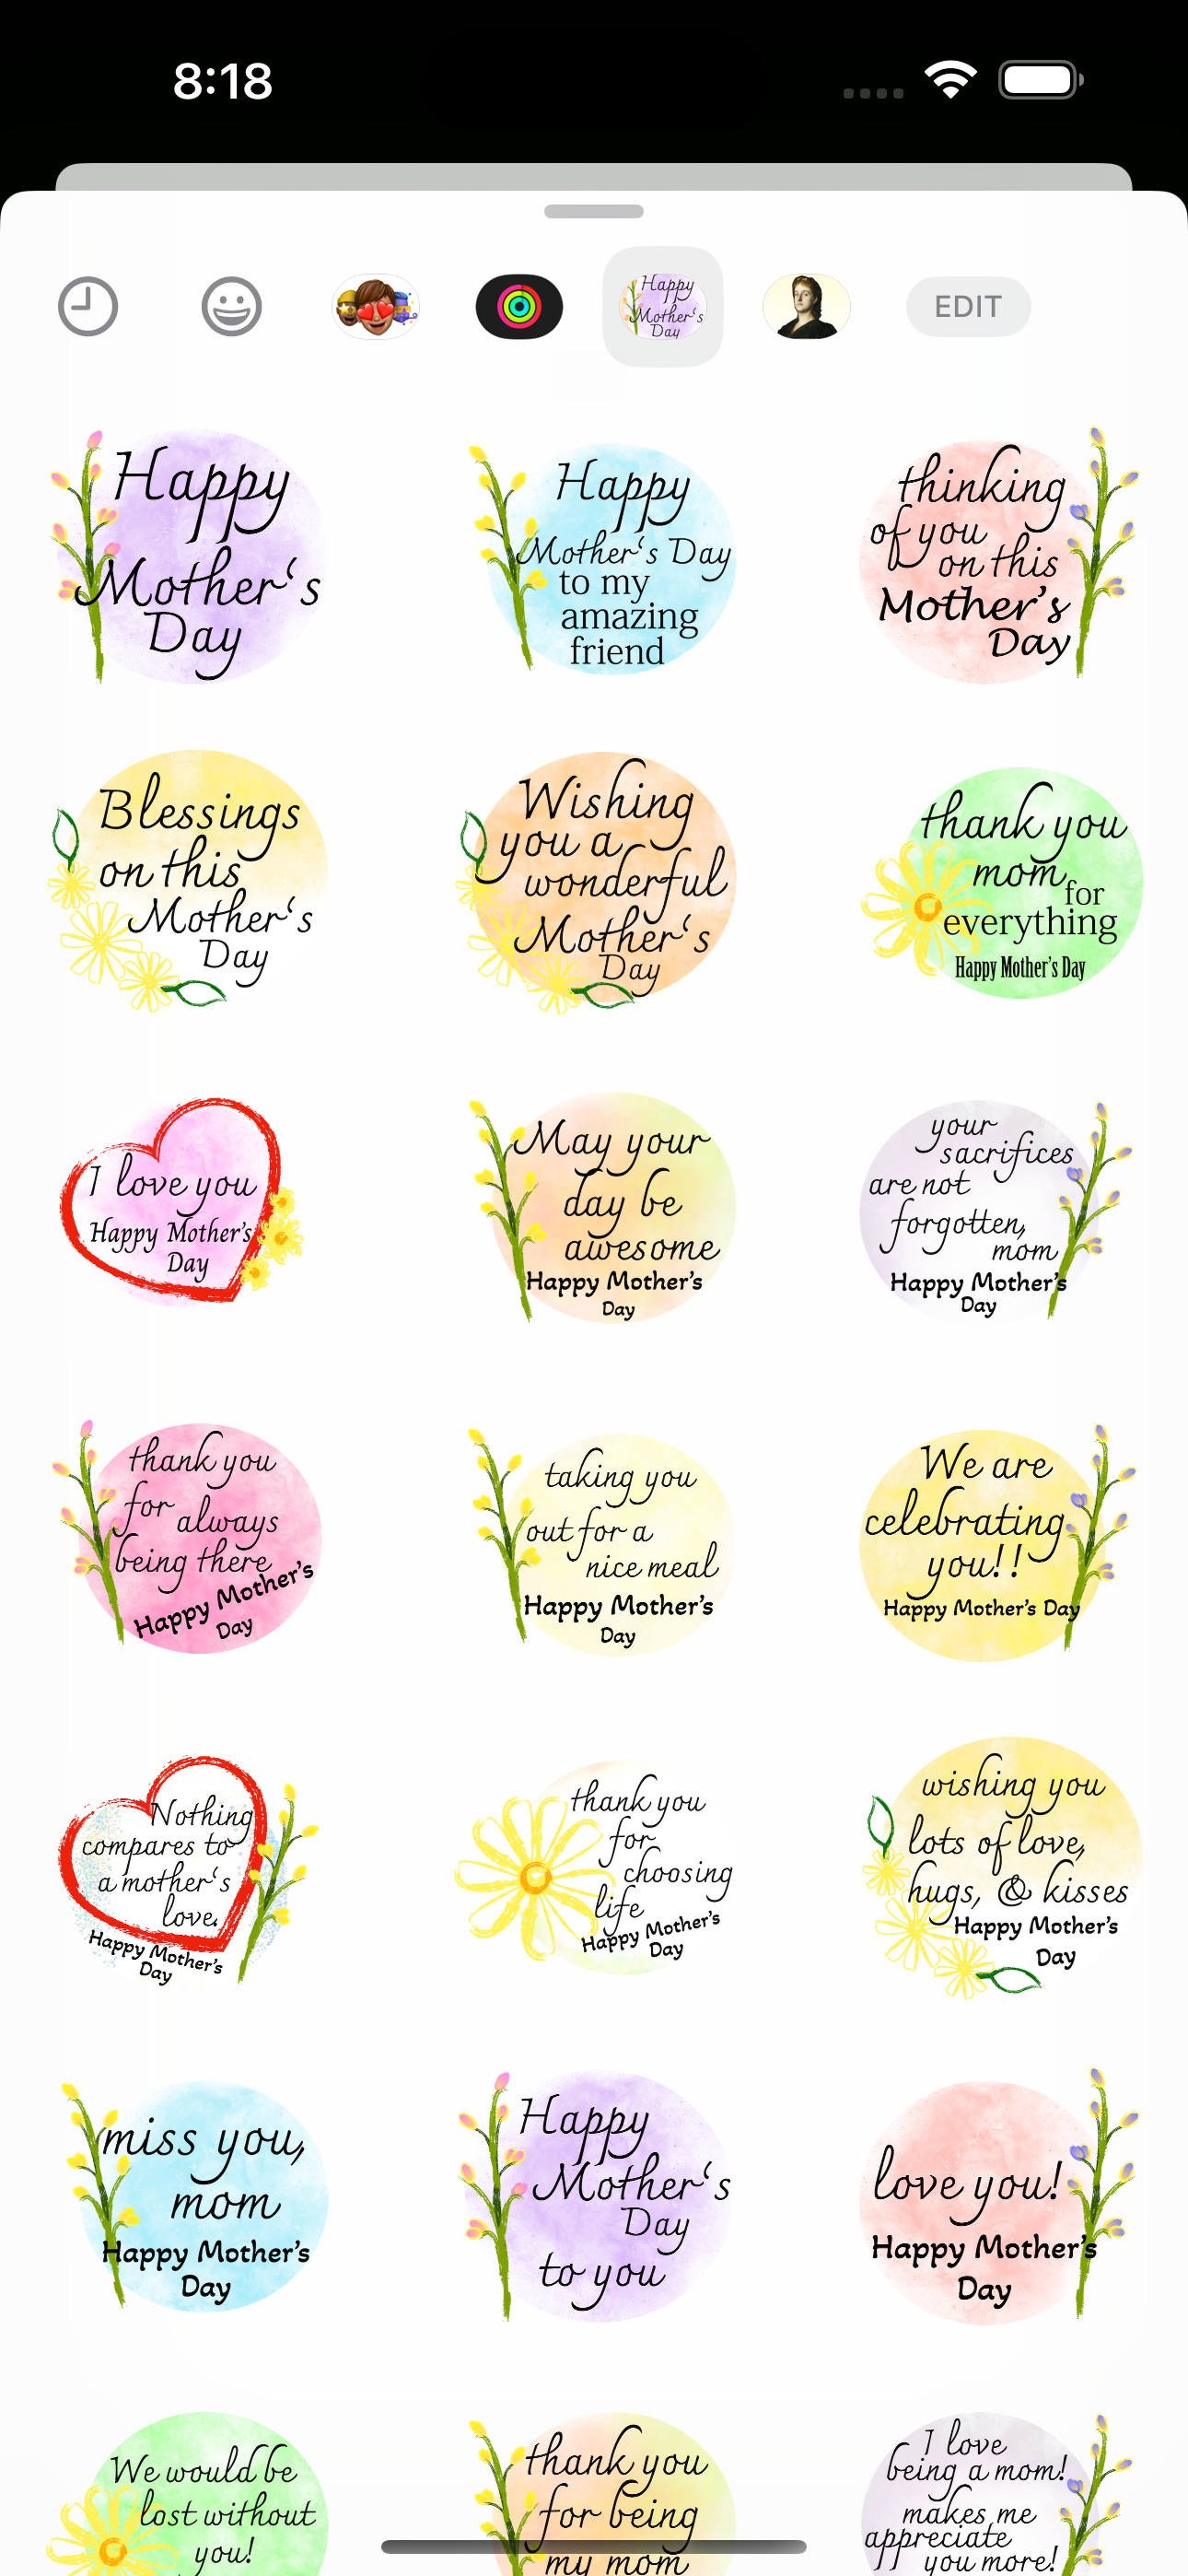 8:18
Happy
Mother's
Day
EDIT
Happy
Mother's
Day
Happy
Mother's Day
to my
amazing
friend
thinking
of you
on this
Mother's
Day
Blessings
on this
Mother's
Day
Wishing
you a
wonderful
Mother's
Day
thank you
mom
for
everything
Happy Mother's Day
I love you
Happy Mother's
Day
May your
day be
awesome
Happy Mother's
Day
your
sacrifices
are not
forgotten,
mom
Happy Mother's
Day
thank you
for always
being there
Happy Mother's
Day
taking you
out for a
nice meal
Happy Mother's
Day
We are
celebrating
you!!
Happy Mother's Day
Nothing
compares to
a mother's
love.
Happy Mother's
Day
thank you
for
choosing
life
Happy Mother's
Day
wishing you
lots of love,
hugs, & kisses
Happy Mother's
Day
miss you,
mom
Happy Mother's
Day
Happy
Mother's
Day
to you
love you!
Happy Mother's
Day
We would be
lost without
you!
thank you
for being
my mom
I love
being a mom!
makes me
appreciate
you more!